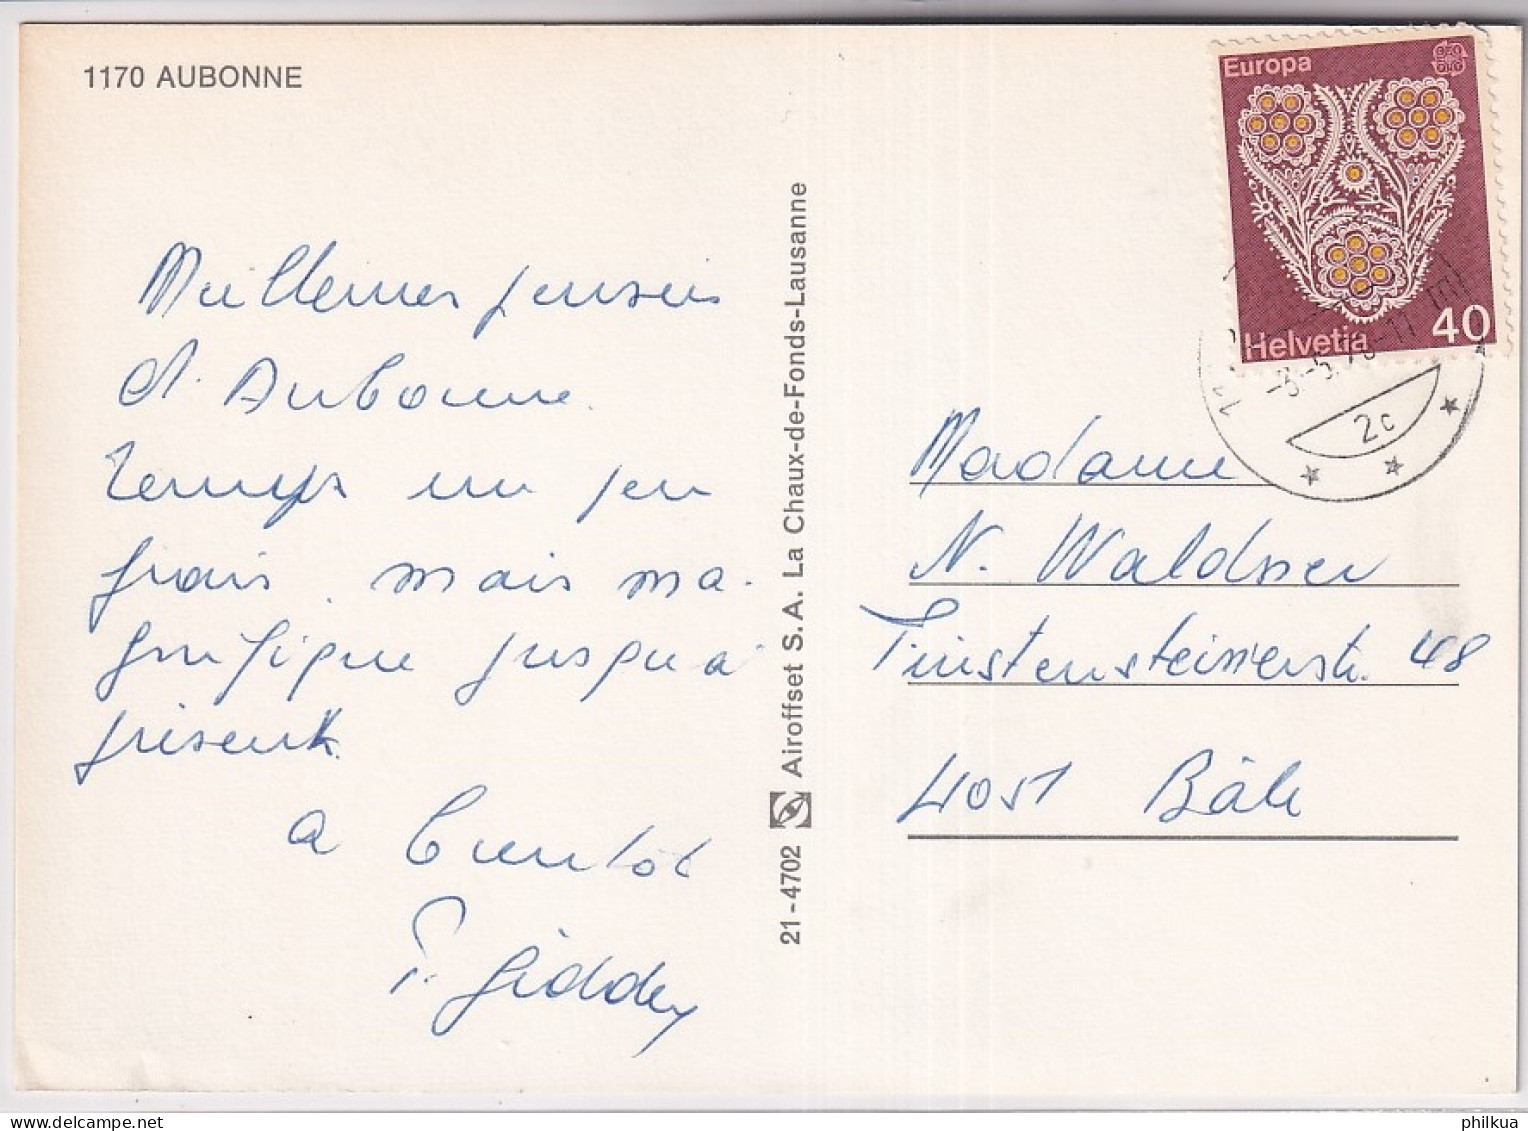 1170 AUBONNE
Meilleures pensées
d'Aubonne.
Temps un peu
frais, mais ma-
gnifique jusqu'à
présent.
à bientôt
F. Giddey
21-4702 Airoffset S.A. La Chaux-de-Fonds-Lausanne
Europa
Helvetia 40
-3.-5.76-11
2c
Madame
N. Waldner
48
4051 Bâle
philkua.com